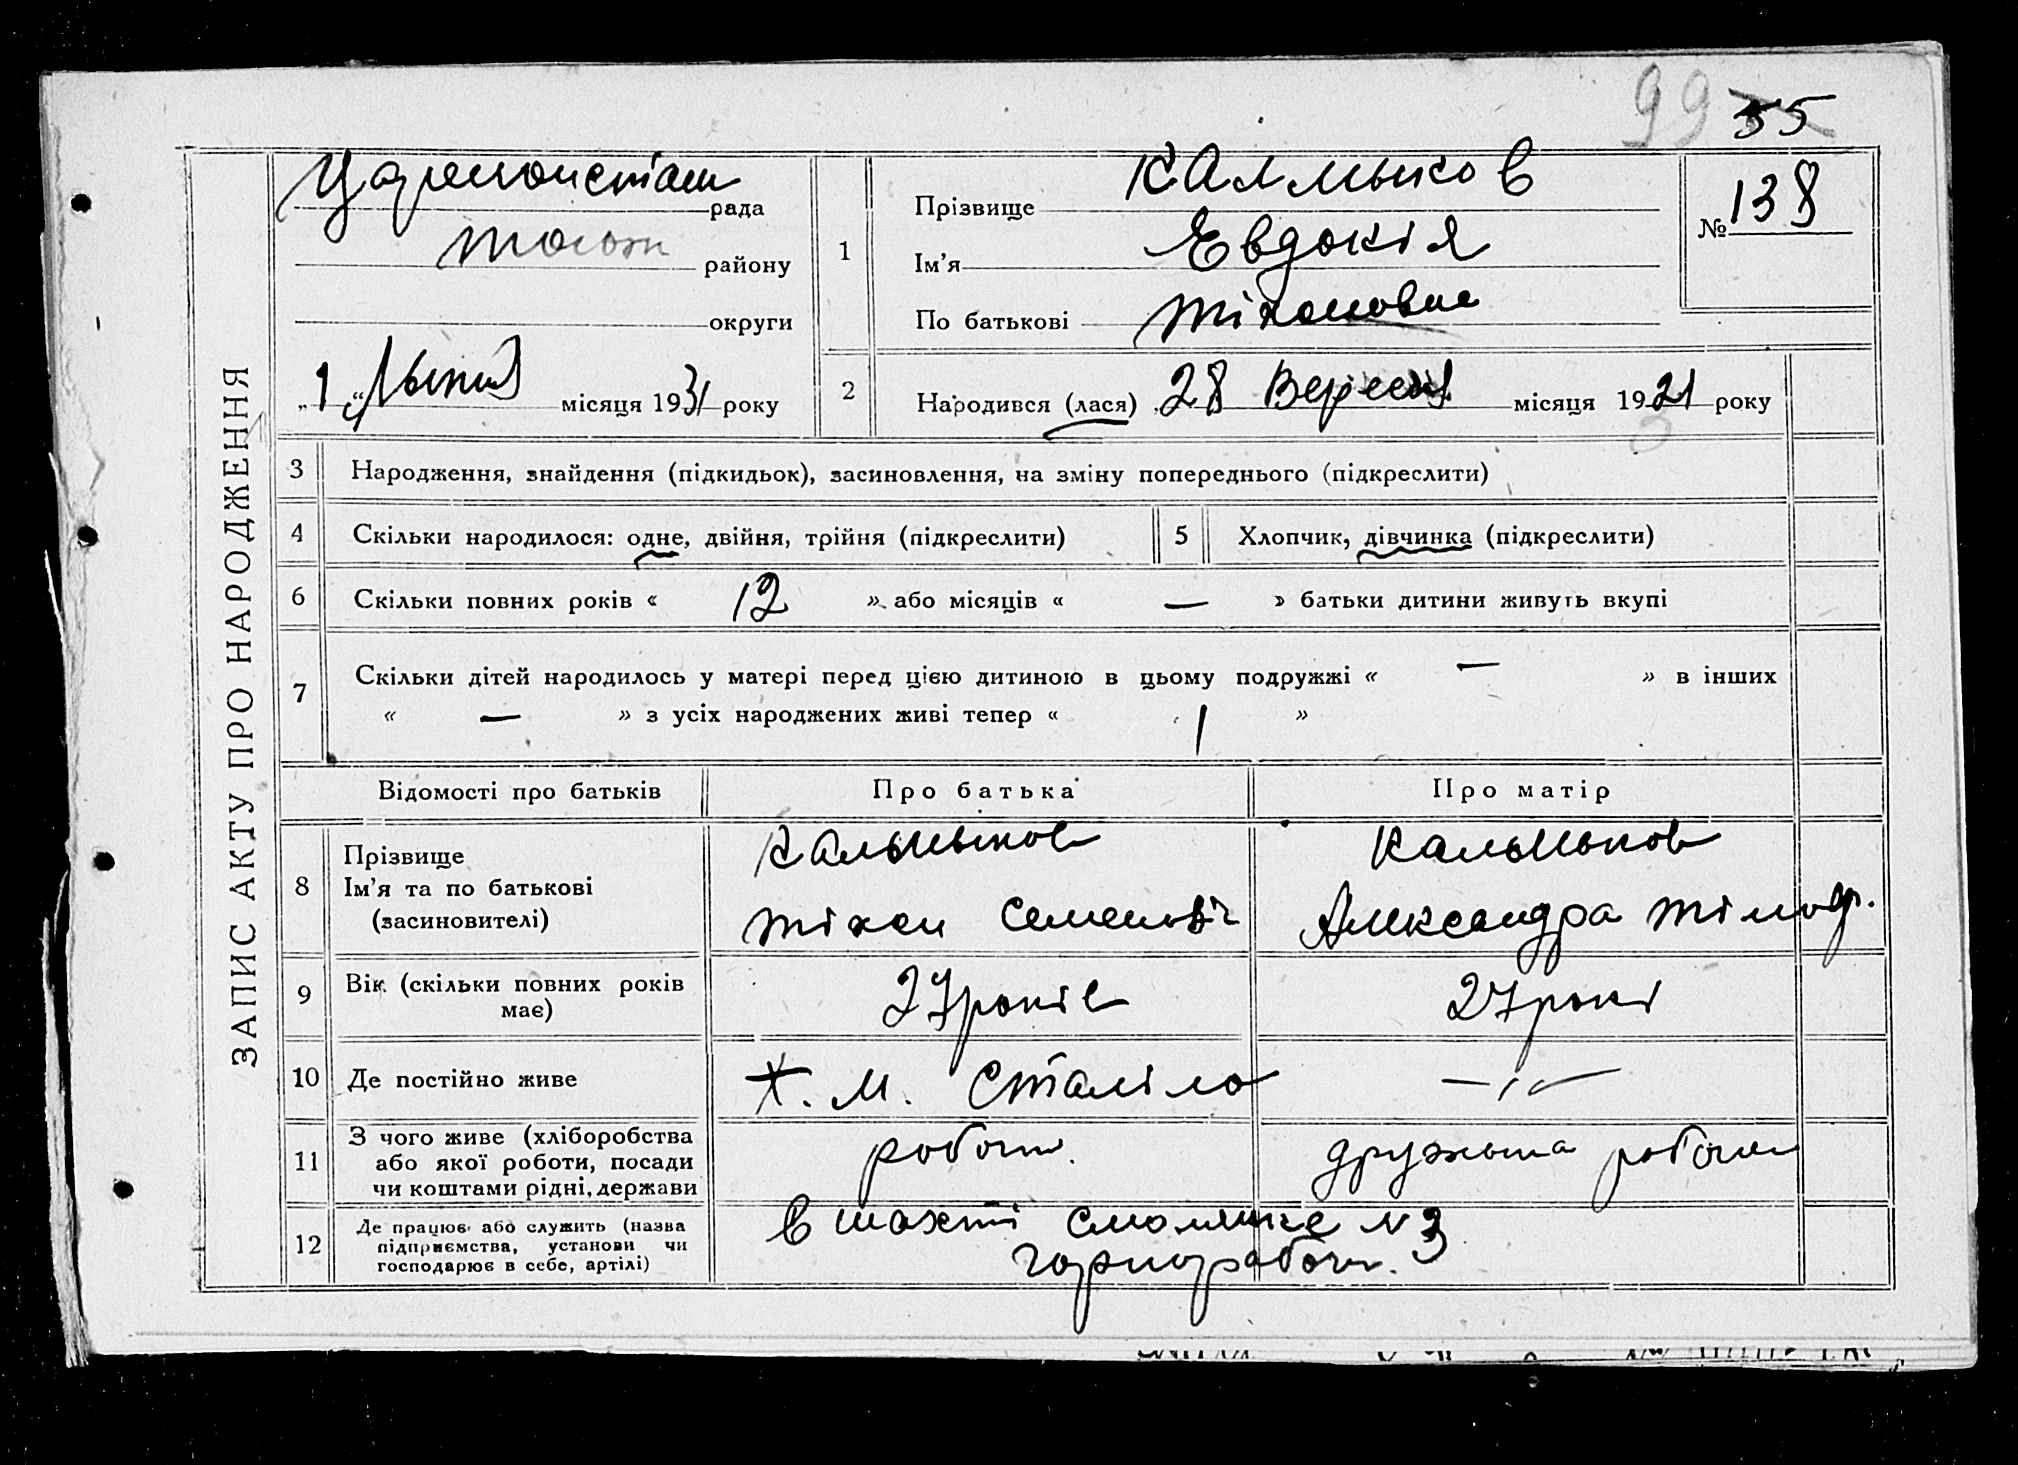 99 55
ЗАПИС АКТУ ПРО НАРОДЖЕННЯ
рада
району
округи
„1“ Липня місяця 1931 року
1
Прізвище Калмыков
Ім'я Евдокія
По батькові Тіхоновна
№ 138
2 Народився (лася) 28 Вересня місяця 1921 року
3 Народження, знайдення (підкидьок), засиновлення, на зміну попереднього (підкреслити)
4 Скільки народилося: одне, двійня, трійня (підкреслити) 5 Хлопчик, дівчинка (підкреслити)
6 Скільки повних років « 12 » або місяців « — » батьки дитини живуть вкупі
7 Скільки дітей народилось у матері перед цією дитиною в цьому подружжі « — » в інших
« — » з усіх народжених живі тепер « 1 »
Відомості про батьків Про батька Про матір
8 Прізвище
Ім'я та по батькові
(засиновителі)
Кальмыков
Тіхон Семеновіч
Кальмыков
Александра Тімоф.
9 Вік (скільки повних років має)
27 років
27 рокі
10 Де постійно живе
Х. М. Сталіло
—〃—
11 З чого живе (хліборобства
або якої роботи, посади
чи коштами рідні, держави
робоч.
дружына
12 Де працює або служить (назва
підприємства, установи чи
господарює в себе, артілі)
в шахті Смолянке N 3
горнорабоч.